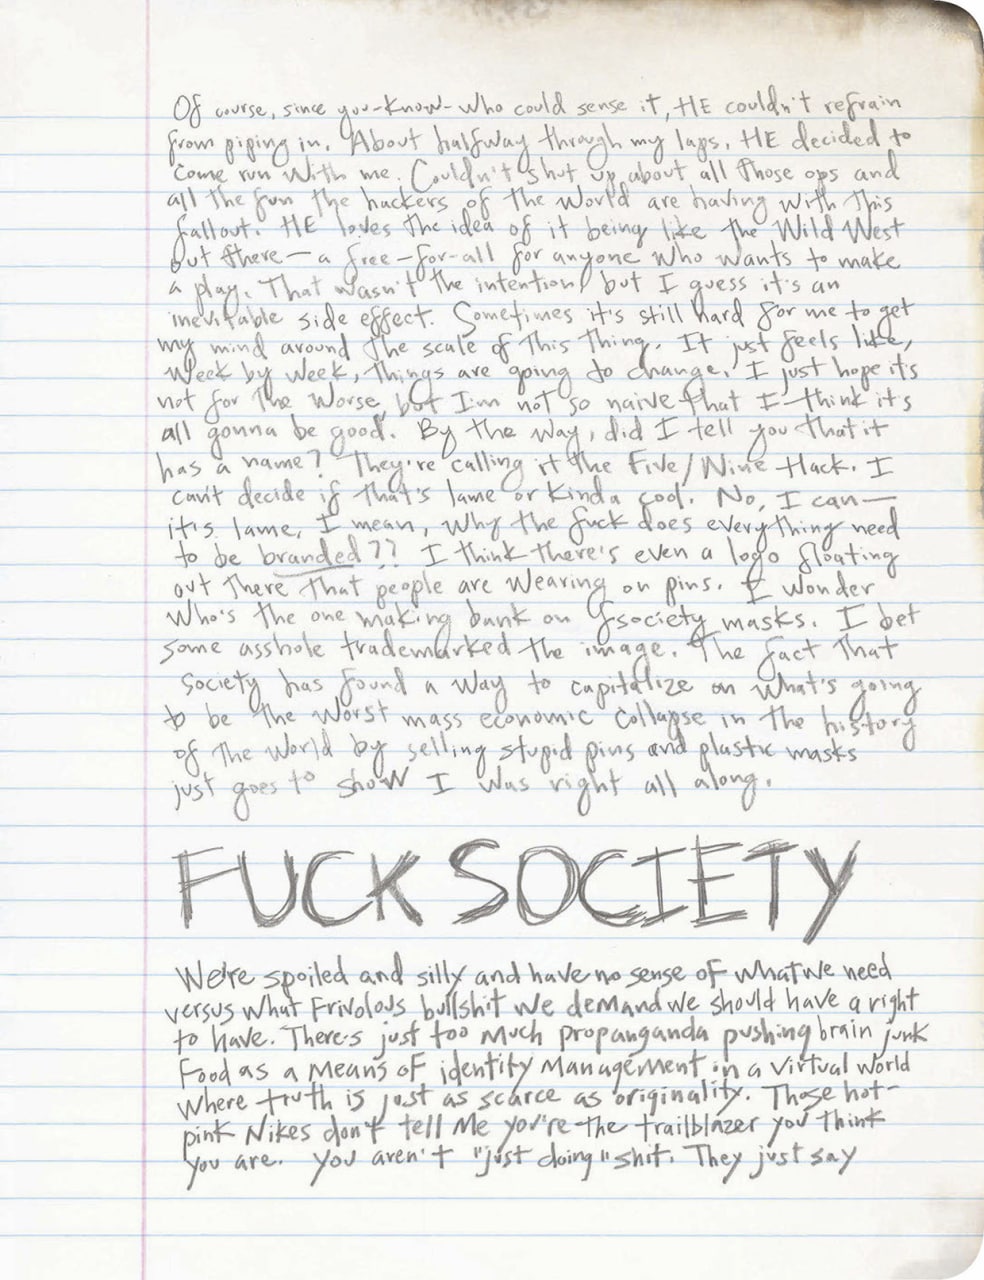 Of course, since you-know-who could sense it, HE couldn't refrain
from piping in. About halfway through my laps, HE decided to
come run with me. Couldn't shut up about all those ops and
all the fun the hackers of the world are having with this
fallout. HE loves the idea of it being like the Wild West
out there — a free-for-all for anyone who wants to make
a play. That wasn't the intention, but I guess it's an
inevitable side effect. Sometimes it's still hard for me to get
my mind around the scale of this thing. It just feels like,
week by week, things are going to change. I just hope it's
not for the worse, but I'm not so naive that I think it's
all gonna be good. By the way, did I tell you that it
has a name? They're calling it the Five/Nine Hack. I
can't decide if that's lame or kinda cool. No, I can —
it's lame, I mean, why the fuck does everything need
to be branded?? I think there's even a logo floating
out there that people are wearing on pins. I wonder
who's the one making bank on fsociety masks. I bet
some asshole trademarked the image. The fact that
society has found a way to capitalize on what's going
to be the worst mass economic collapse in the history
of the world by selling stupid pins and plastic masks
just goes to show I was right all along.
FUCK SOCIETY
We're spoiled and silly and have no sense of what we need
versus what frivolous bullshit we demand we should have a right
to have. There's just too much propanganda pushing brain junk
food as a means of identity management in a virtual world
where truth is just as scarce as originality. Those hot-
pink Nikes don't tell me you're the trailblazer you think
you are. You aren't "just doing" shit. They just say